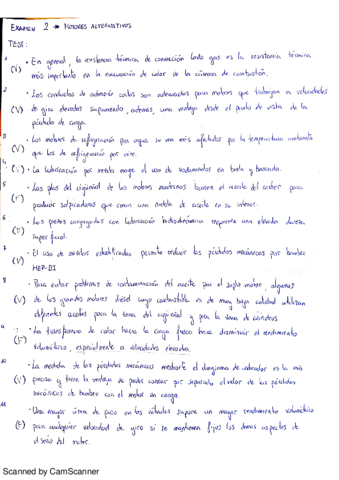 EXAMEN 2 → MOTORES ALTERNATIVOS
TEST:
1 · En general, la resistencia térmica de convección lado gas es la resistencia térmica
(V) más importante en la evacuación de calor de la cámara de combustión.
2 · Los conductos de admisión cortos son adecuados para motores que trabajan a velocidades
(V) de giro elevadas suponiendo, además, una ventaja desde el punto de vista de la
pérdida de carga.
3 · Los motores de refrigeración por agua se ven más afectados por la temperatura ambiente
(V) que los de refrigeración por aire.
4 (V) · La lubricación por exige el uso de en bomba y .
5 · Las del cigüeñal de los motores modernos el aceite del cárter para
(F) producir salpicaduras que crean una niebla de aceite en su interior.
6 · Las piezas conjugadas con lubricación hidrodinámica requieren una elevada dureza
(F) superficial.
7 · El uso de estratificadas permite reducir las pérdidas mecánicas por bombeo
(V) MEP-DI
8 · Para evitar problemas de contaminación del aceite por el soplo motor, algunos
(V) de los grandes motores diésel cuyo combustible es de muy baja calidad utilizan
diferentes aceites para la zona del cigüeñal y para la zona de cilindros
9 · La transferencia de calor hacia la carga fresca hace disminuir el rendimiento
(F) volumétrico, especialmente a velocidades elevadas.
10 · La medida de las pérdidas mecánicas mediante el diagrama de indicador es la más
(V) precisa y tiene la ventaja de poder conocer por separado el valor de las pérdidas
mecánicas de bombeo con el motor en carga.
11 · Una mayor área de paso en las válvulas supone un mayor rendimiento volumétrico
(F) para cualquier velocidad de giro si se mantienen fijos los demás aspectos de
diseño del motor.
Scanned by CamScanner